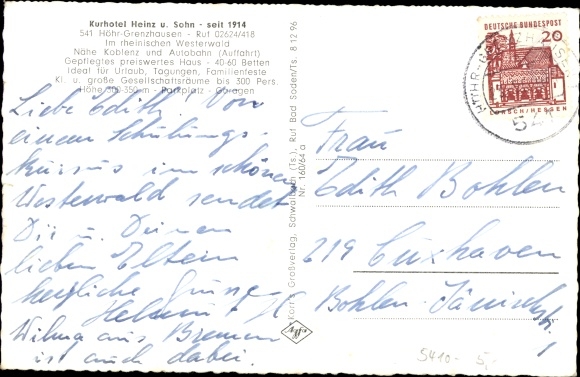 Kurhotel Heinz u. Sohn - seit 1914
541 Höhr-Grenzhausen - Ruf 02624/418
Im rheinischen Westerwald
Nähe Koblenz und Autobahn (Auffahrt)
Gepflegtes preiswertes Haus - 40-60 Betten
Ideal für Urlaub, Tagungen, Familienfeste
Kl. u. große Gesellschaftsräume bis 300 Pers.
Höhe 300-350 m - Parkplatz - Garagen
Liebe Edith! Von
einem Schulungs-
kursus im schönen
Westerwald sendet
Dir u. Deinen
lieben Eltern
herzliche Grüße
Helmut
Wilma aus Bremen
ist auch dabei.
Großverlag, Schwalbach (Ts.), Ruf Bad Soden/Ts. 8 12 96
Nr. 160/64 a
DEUTSCHE BUNDESPOST
20
LORSCH/HESSEN
541
Frau
Edith Bohlen
219 Cuxhaven
Bohlen-
5410-
5,-